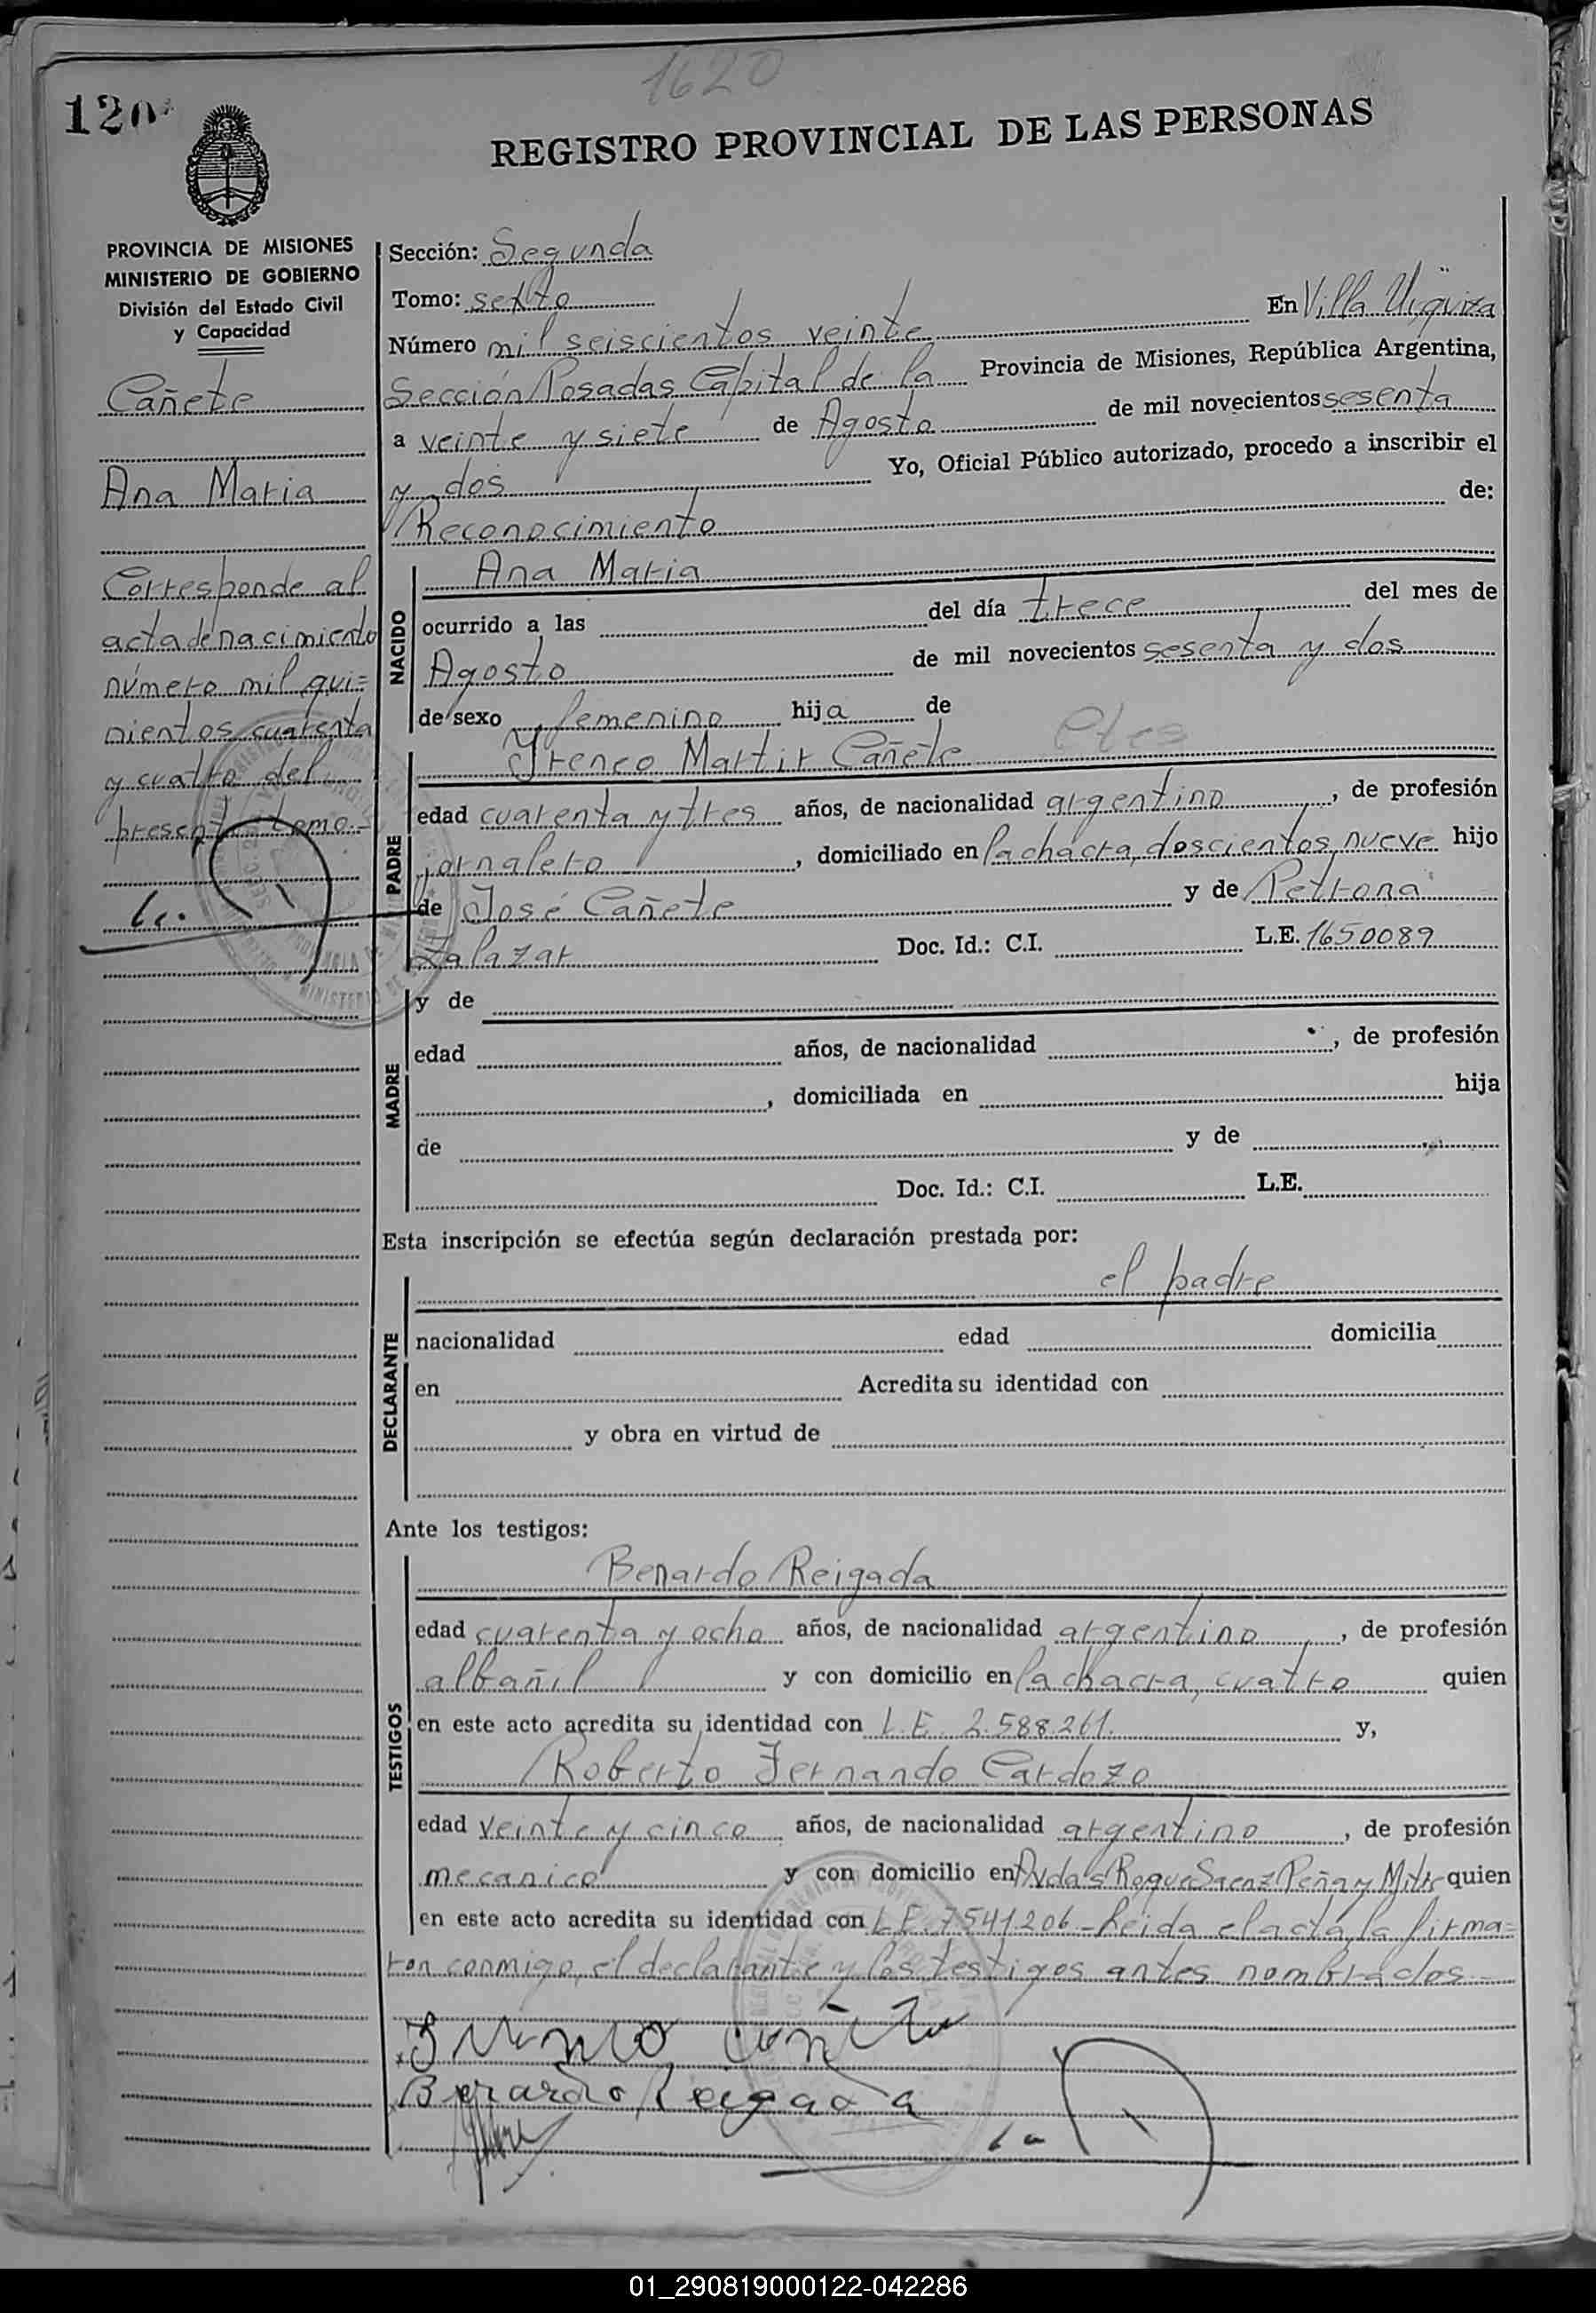 1620
120
REGISTRO PROVINCIAL DE LAS PERSONAS
PROVINCIA DE MISIONES
MINISTERIO DE GOBIERNO
División del Estado Civil
y Capacidad
Cañete
Ana Maria
Corresponde al
acta de nacimiento
número mil qui=
nientos cuarenta
y cuatro del
presente tomo.-
Sección: Segunda
Tomo: sexto
Número mil seiscientos veinte En Villa Urquiza
Sección Posadas Capital de la Provincia de Misiones, República Argentina,
a veinte y siete de Agosto de mil novecientos sesenta
y dos Yo, Oficial Público autorizado, procedo a inscribir el
Reconocimiento de:
NACIDO
Ana Maria
ocurrido a las del día trece del mes de
Agosto de mil novecientos sesenta y dos
de sexo femenino hija de
PADRE
Ireneo Martir Cañete
edad cuarenta y tres años, de nacionalidad argentino, de profesión
jornalero, domiciliado en la chacra, doscientos nueve hijo
de José Cañete y de Petrona
Zalazar Doc. Id.: C.I. L.E. 1650089
MADRE
y de
edad años, de nacionalidad , de profesión
, domiciliada en hija
de y de
Doc. Id.: C.I. L.E.
Esta inscripción se efectúa según declaración prestada por:
DECLARANTE
el padre
nacionalidad edad domicilia
en Acredita su identidad con
y obra en virtud de
Ante los testigos:
TESTIGOS
Berardo Reigada
edad cuarenta y ocho años, de nacionalidad argentino, de profesión
albañil y con domicilio en la chacra, cuatro quien
en este acto acredita su identidad con L.E. 2.588.261. y,
Roberto Fernando Cardozo
edad veinte y cinco años, de nacionalidad argentino, de profesión
mecanico y con domicilio en Avdas Roque Saenz Peña y Mitre quien
en este acto acredita su identidad con L.E. 7541206 - Leida el acta, la firma=
ron conmigo, el declarante y los testigos antes nombrados.-
Ireneo Cañete
Berardo Reigada
01_290819000122-042286